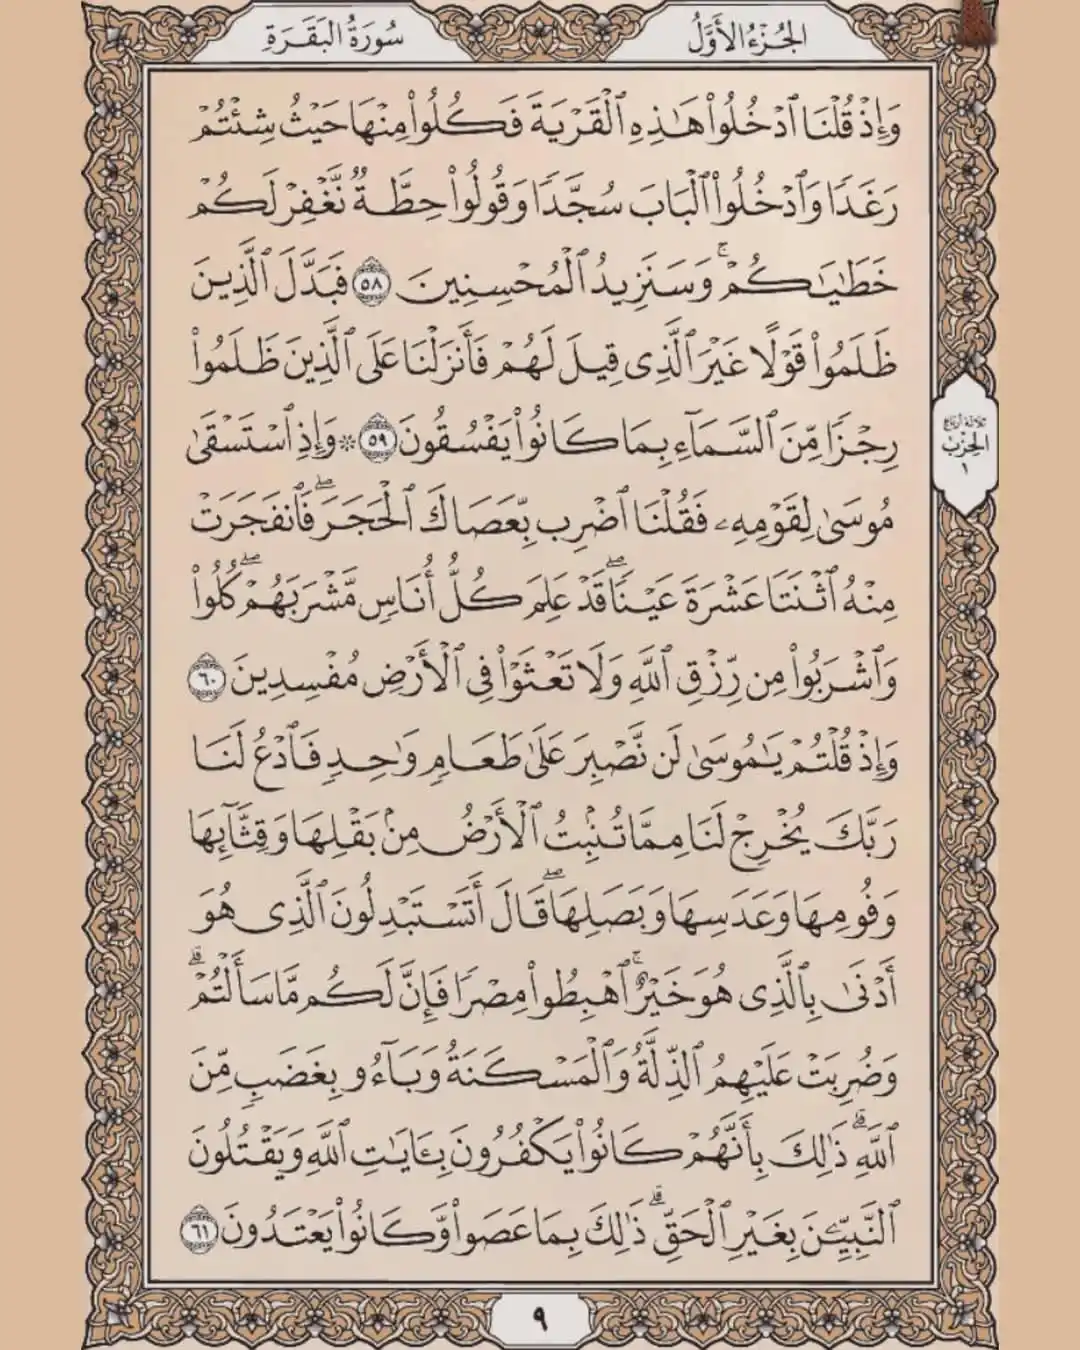 الجُزْءُ الأَوَّلُ
سُورَةُ البَقَرَةِ
وَإِذۡ قُلۡنَا ٱدۡخُلُواْ هَٰذِهِ ٱلۡقَرۡيَةَ فَكُلُواْ مِنۡهَا حَيۡثُ شِئۡتُمۡ
رَغَدٗا وَٱدۡخُلُواْ ٱلۡبَابَ سُجَّدٗا وَقُولُواْ حِطَّةٞ نَّغۡفِرۡ لَكُمۡ
خَطَٰيَٰكُمۡۚ وَسَنَزِيدُ ٱلۡمُحۡسِنِينَ ٥٨ فَبَدَّلَ ٱلَّذِينَ
ظَلَمُواْ قَوۡلًا غَيۡرَ ٱلَّذِي قِيلَ لَهُمۡ فَأَنزَلۡنَا عَلَى ٱلَّذِينَ ظَلَمُواْ
رِجۡزٗا مِّنَ ٱلسَّمَآءِ بِمَا كَانُواْ يَفۡسُقُونَ ٥٩ ۞ وَإِذِ ٱسۡتَسۡقَىٰ
مُوسَىٰ لِقَوۡمِهِۦ فَقُلۡنَا ٱضۡرِب بِّعَصَاكَ ٱلۡحَجَرَۖ فَٱنفَجَرَتۡ
مِنۡهُ ٱثۡنَتَا عَشۡرَةَ عَيۡنٗاۖ قَدۡ عَلِمَ كُلُّ أُنَاسٖ مَّشۡرَبَهُمۡۖ كُلُواْ
وَٱشۡرَبُواْ مِن رِّزۡقِ ٱللَّهِ وَلَا تَعۡثَوۡاْ فِي ٱلۡأَرۡضِ مُفۡسِدِينَ ٦٠
وَإِذۡ قُلۡتُمۡ يَٰمُوسَىٰ لَن نَّصۡبِرَ عَلَىٰ طَعَامٖ وَٰحِدٖ فَٱدۡعُ لَنَا
رَبَّكَ يُخۡرِجۡ لَنَا مِمَّا تُنۢبِتُ ٱلۡأَرۡضُ مِنۢ بَقۡلِهَا وَقِثَّآئِهَا
وَفُومِهَا وَعَدَسِهَا وَبَصَلِهَاۖ قَالَ أَتَسۡتَبۡدِلُونَ ٱلَّذِي هُوَ
أَدۡنَىٰ بِٱلَّذِي هُوَ خَيۡرٌۚ ٱهۡبِطُواْ مِصۡرٗا فَإِنَّ لَكُم مَّا سَأَلۡتُمۡۗ
وَضُرِبَتۡ عَلَيۡهِمُ ٱلذِّلَّةُ وَٱلۡمَسۡكَنَةُ وَبَآءُو بِغَضَبٖ مِّنَ
ٱللَّهِۗ ذَٰلِكَ بِأَنَّهُمۡ كَانُواْ يَكۡفُرُونَ بِـَٔايَٰتِ ٱللَّهِ وَيَقۡتُلُونَ
ٱلنَّبِيِّـۧنَ بِغَيۡرِ ٱلۡحَقِّۗ ذَٰلِكَ بِمَا عَصَواْ وَّكَانُواْ يَعۡتَدُونَ ٦١
ثلاثة أرباع
الحِزْب
١
٩